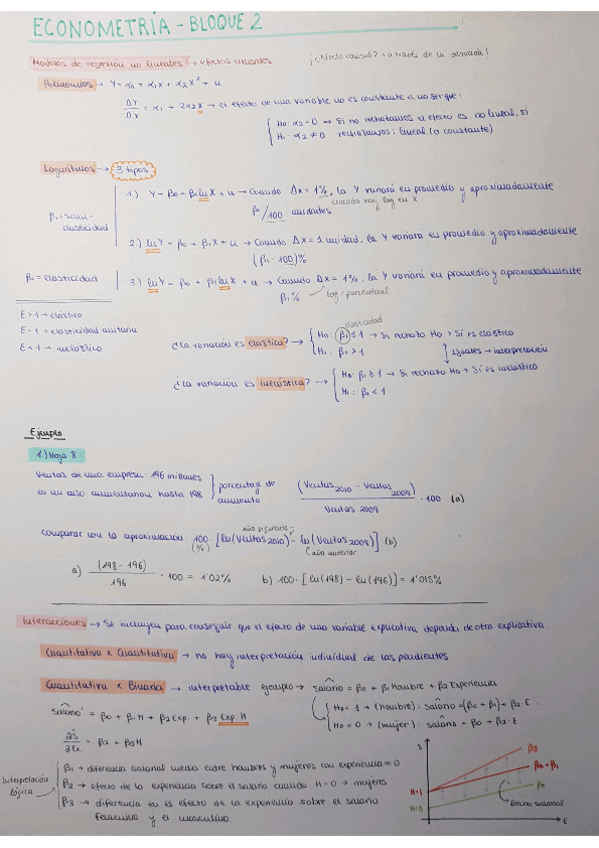 ECONOMETRÍA - BLOQUE 2
Modelos de regresión no lineales → efectos causales ¿Efecto causal? → a través de la derivada!
Polinomios → Y = α0 + α1X + α2X² + u
ΔY/ΔX = α1 + 2α2X → el efecto de una variable no es constante a no ser que:
H0: α2 = 0 → Si no rechazamos el efecto es no lineal, si
H1: α2 ≠ 0 rechazamos: lineal (o constante)
Logaritmos → 3 tipos
1.) Y = β0 + β1 ln X + u → Cuando ΔX = 1%, la Y variará en promedio y aproximadamente
β1/100 unidades cuando hay log en X
β1 = semi-elasticidad
2.) ln Y = β0 + β1X + u → Cuando ΔX = 1 unidad, la Y variará en promedio y aproximadamente
(β1 · 100)%
β1 = elasticidad 3.) ln Y = β0 + β1 ln X + u → Cuando ΔX = 1%, la Y variará en promedio y aproximadamente
β1 % log = porcentual
E > 1 → elástico
E = 1 → elasticidad unitaria
E < 1 → inelástico
elasticidad
¿La variación es elástica? → H0: β1 ≤ 1 → Si rechazo H0 → Sí es elástico
H1: β1 > 1
iguales → interpretación
¿La variación es inelástica? → H0: β1 ≥ 1 → Si rechazo H0 → Sí es inelástico
H1: β1 < 1
Ejemplo
1.) Hoja 8
Ventas de una empresa: 196 millones
en un año aumentaron hasta 198
porcentaje de aumento
(Ventas2010 - Ventas2009) / Ventas 2009 · 100 (a)
año siguiente
Comparar con la aproximación: 100 · [ln(Ventas2010) - ln(Ventas2009)] (b)
(%) año anterior
a) (198 - 196) / 196 · 100 = 1'02% b) 100 · [ln(198) - ln(196)] = 1'015%
Interacciones → Se incluyen para conseguir que el efecto de una variable explicativa dependa de otra explicativa
Cuantitativa x Cuantitativa → no hay interpretación individual de las pendientes
Cuantitativa x Binaria → interpretable ejemplo → salario = β0 + β1 Hombre + β2 Experiencia
salario = β0 + β1 H + β2 Exp. + β3 Exp. H
= 1 → (hombre): salario = (β0 + β1) + β2 · E
= 0 → (mujer): salario = β0 + β2 · E
∂S/∂Ex = β2 + β3H
Interpretación lógica
β1 → diferencia salarial media entre hombres y mujeres con experiencia = 0
β2 → efecto de la experiencia sobre el salario cuando H = 0 → mujeres
β3 → diferencia en el efecto de la experiencia sobre el salario
femenino y el masculino
S
β3
β0 + β1
H=1
H=0
β0
salarial
E